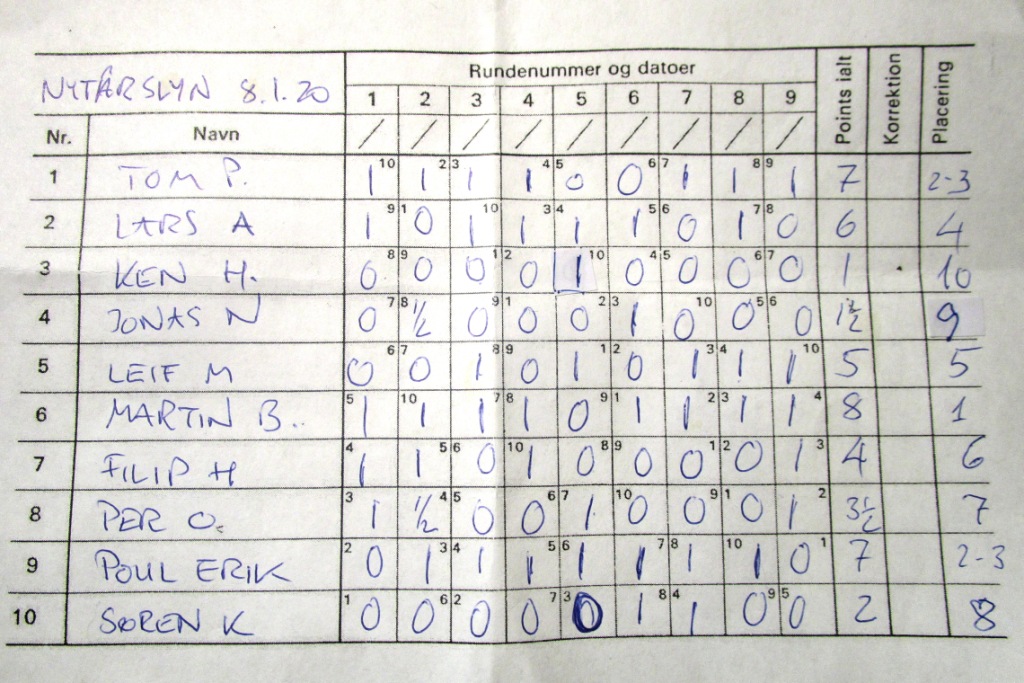 NYTÅRSLYN 8.1.20 Rundenummer og datoer Points ialt Korrektion Placering
1 2 3 4 5 6 7 8 9
Nr. Navn / / / / / / / / /
1 TOM P. 1 10 1 2 3 1 1 4 5 0 0 6 7 1 1 8 9 1 7 2-3
2 LARS A 1 9 1 0 1 10 1 3 4 1 1 5 6 0 1 7 8 0 6 4
3 KEN H. 0 8 9 0 0 1 2 0 1 10 0 4 5 0 0 6 7 0 1 10
4 JONAS N 0 7 8 ½ 0 9 1 0 0 2 3 1 0 10 0 5 6 0 1½ 9
5 LEIF M 0 6 7 0 1 8 9 0 1 1 2 0 1 3 4 1 1 10 5 5
6 MARTIN B. 5 1 10 1 1 7 8 1 0 9 1 1 1 2 3 1 1 4 8 1
7 FILIP H 4 1 1 5 6 0 10 1 0 8 9 0 0 1 2 0 1 3 4 6
8 PER O. 3 1 ½ 4 5 0 0 6 7 1 10 0 0 9 1 0 1 2 3½ 7
9 POUL ERIK 2 0 1 3 4 1 1 5 6 1 1 7 8 1 10 1 0 1 7 2-3
10 SØREN K 1 0 0 6 2 0 0 7 3 0 1 8 4 1 0 9 5 0 2 8